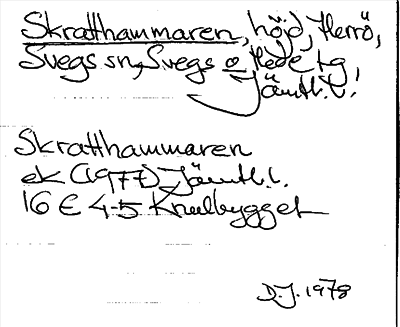 Skratthammaren, höjd, Herrö,
Svegs sn, Svegs o Hede tg
Jämtl. l.
Skratthammaren
ek (1977) Jämtl. l.
16 E 4-5 Knulbygget
D.J. 1978